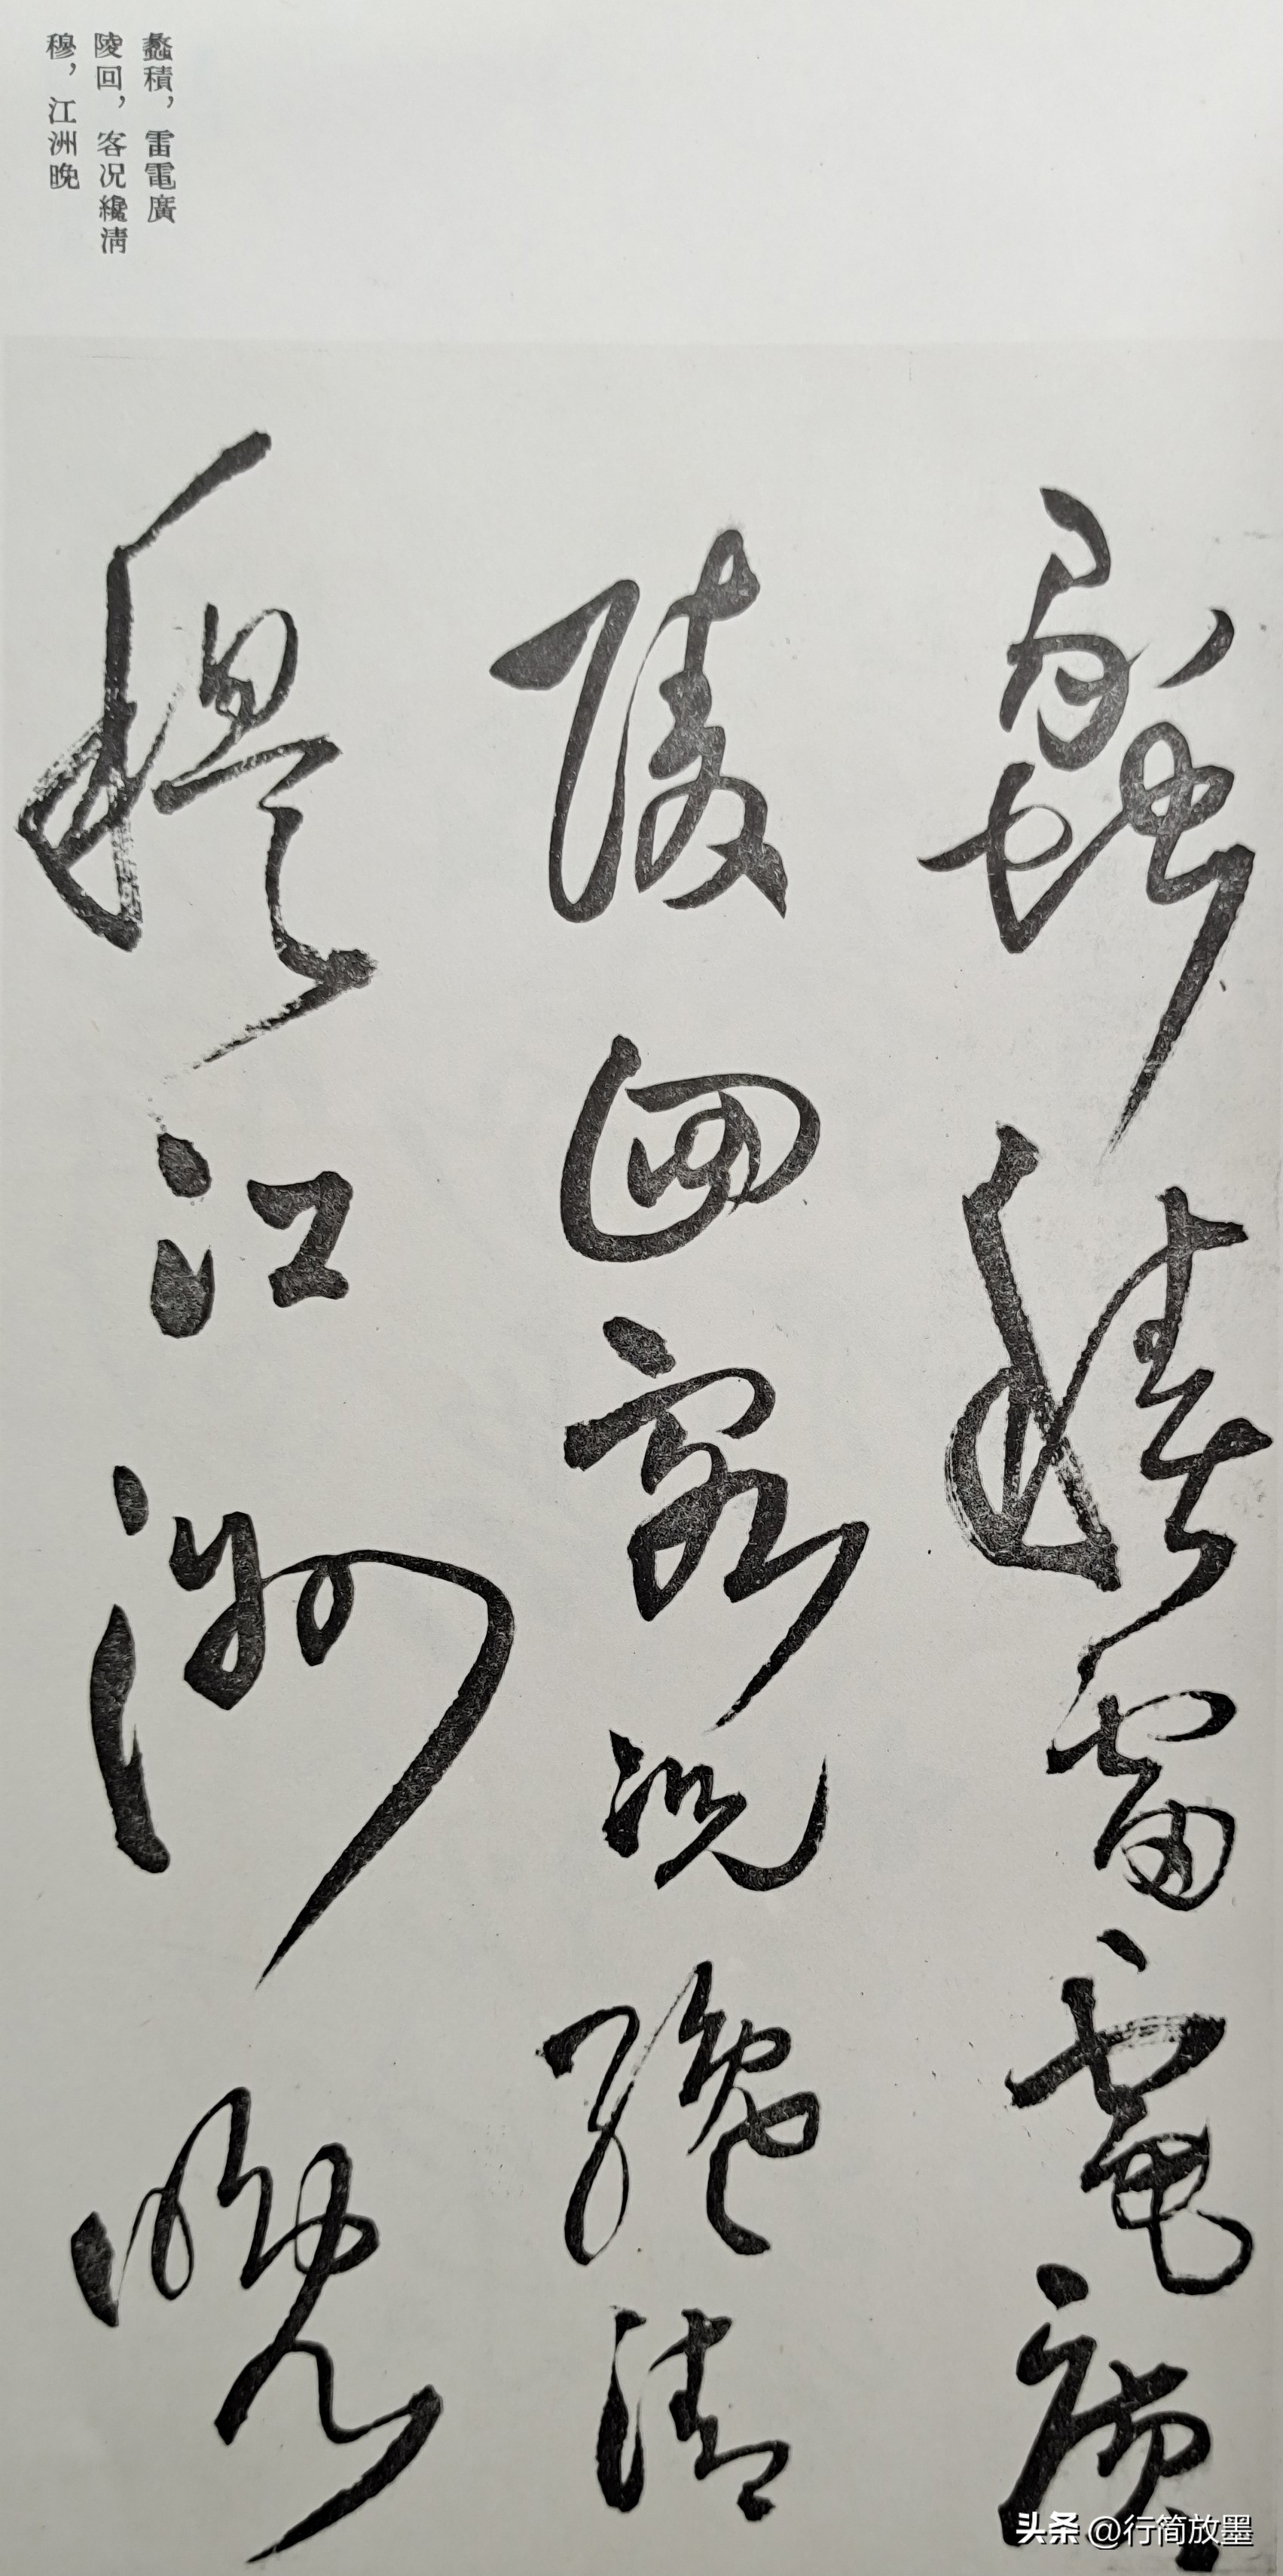 蠡積，雷電廣
陵回，客况纔清
穆，江洲晚
蠡積雷電廣
陵回客况纔清
穆江洲晚
头条 @行简放墨